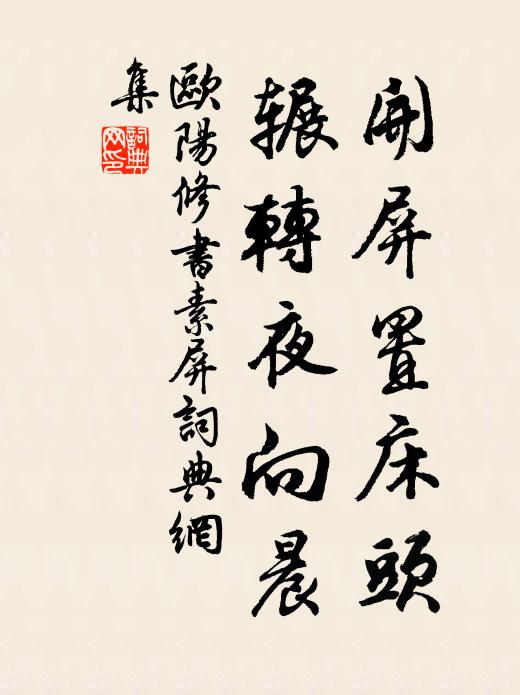 開屏置床頭
輾轉夜向晨
歐陽修書素屏詞典網
集
詞典網印